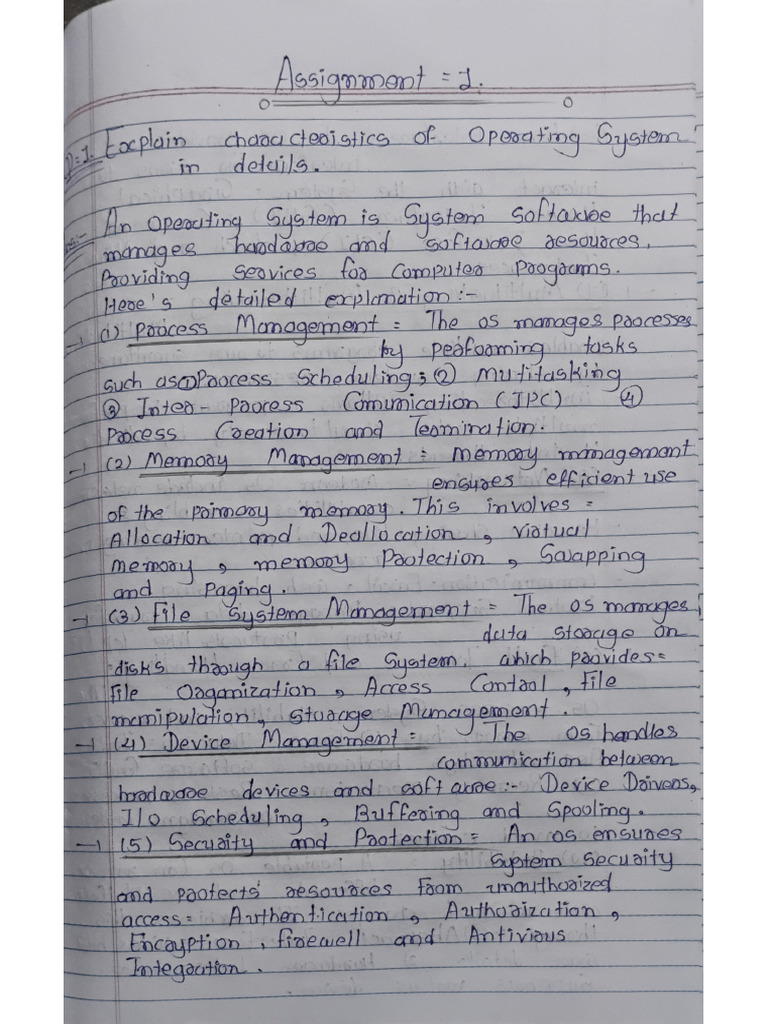 Assignment = 1.
Q=1. Explain characteristics of Operating System
in details.
Ans:- An Operating System is System software that
manages hardware and software resources,
Providing services for computer programs.
Here's detailed explanation :-
→ (1) Process Management = The OS manages processes
by performing tasks
such as ① Process Scheduling ; ② Mutitasking
③ Inter - Process Comunication (IPC) ④
Process Creation and Termination.
→ (2) Memory Management = memory management
ensures efficient use
of the primary memory. This involves =
Allocation and Deallocation, virtual
memory, memory Protection, Swapping
and Paging.
→ (3) File System Management = The OS manages
data storage on
disks through a file System. which provides =
File Organization, Access Control, File
manipulation, storage Management.
→ (4) Device Management = The OS handles
communication between
hardware devices and software :- Device Drivers,
I/O Scheduling, Buffering and Spooling.
→ (5) Security and Protection = An OS ensures
System security
and protects resources from unauthorized
access = Authentication, Authorization,
Encryption, firewell and Antivirus
Integration.